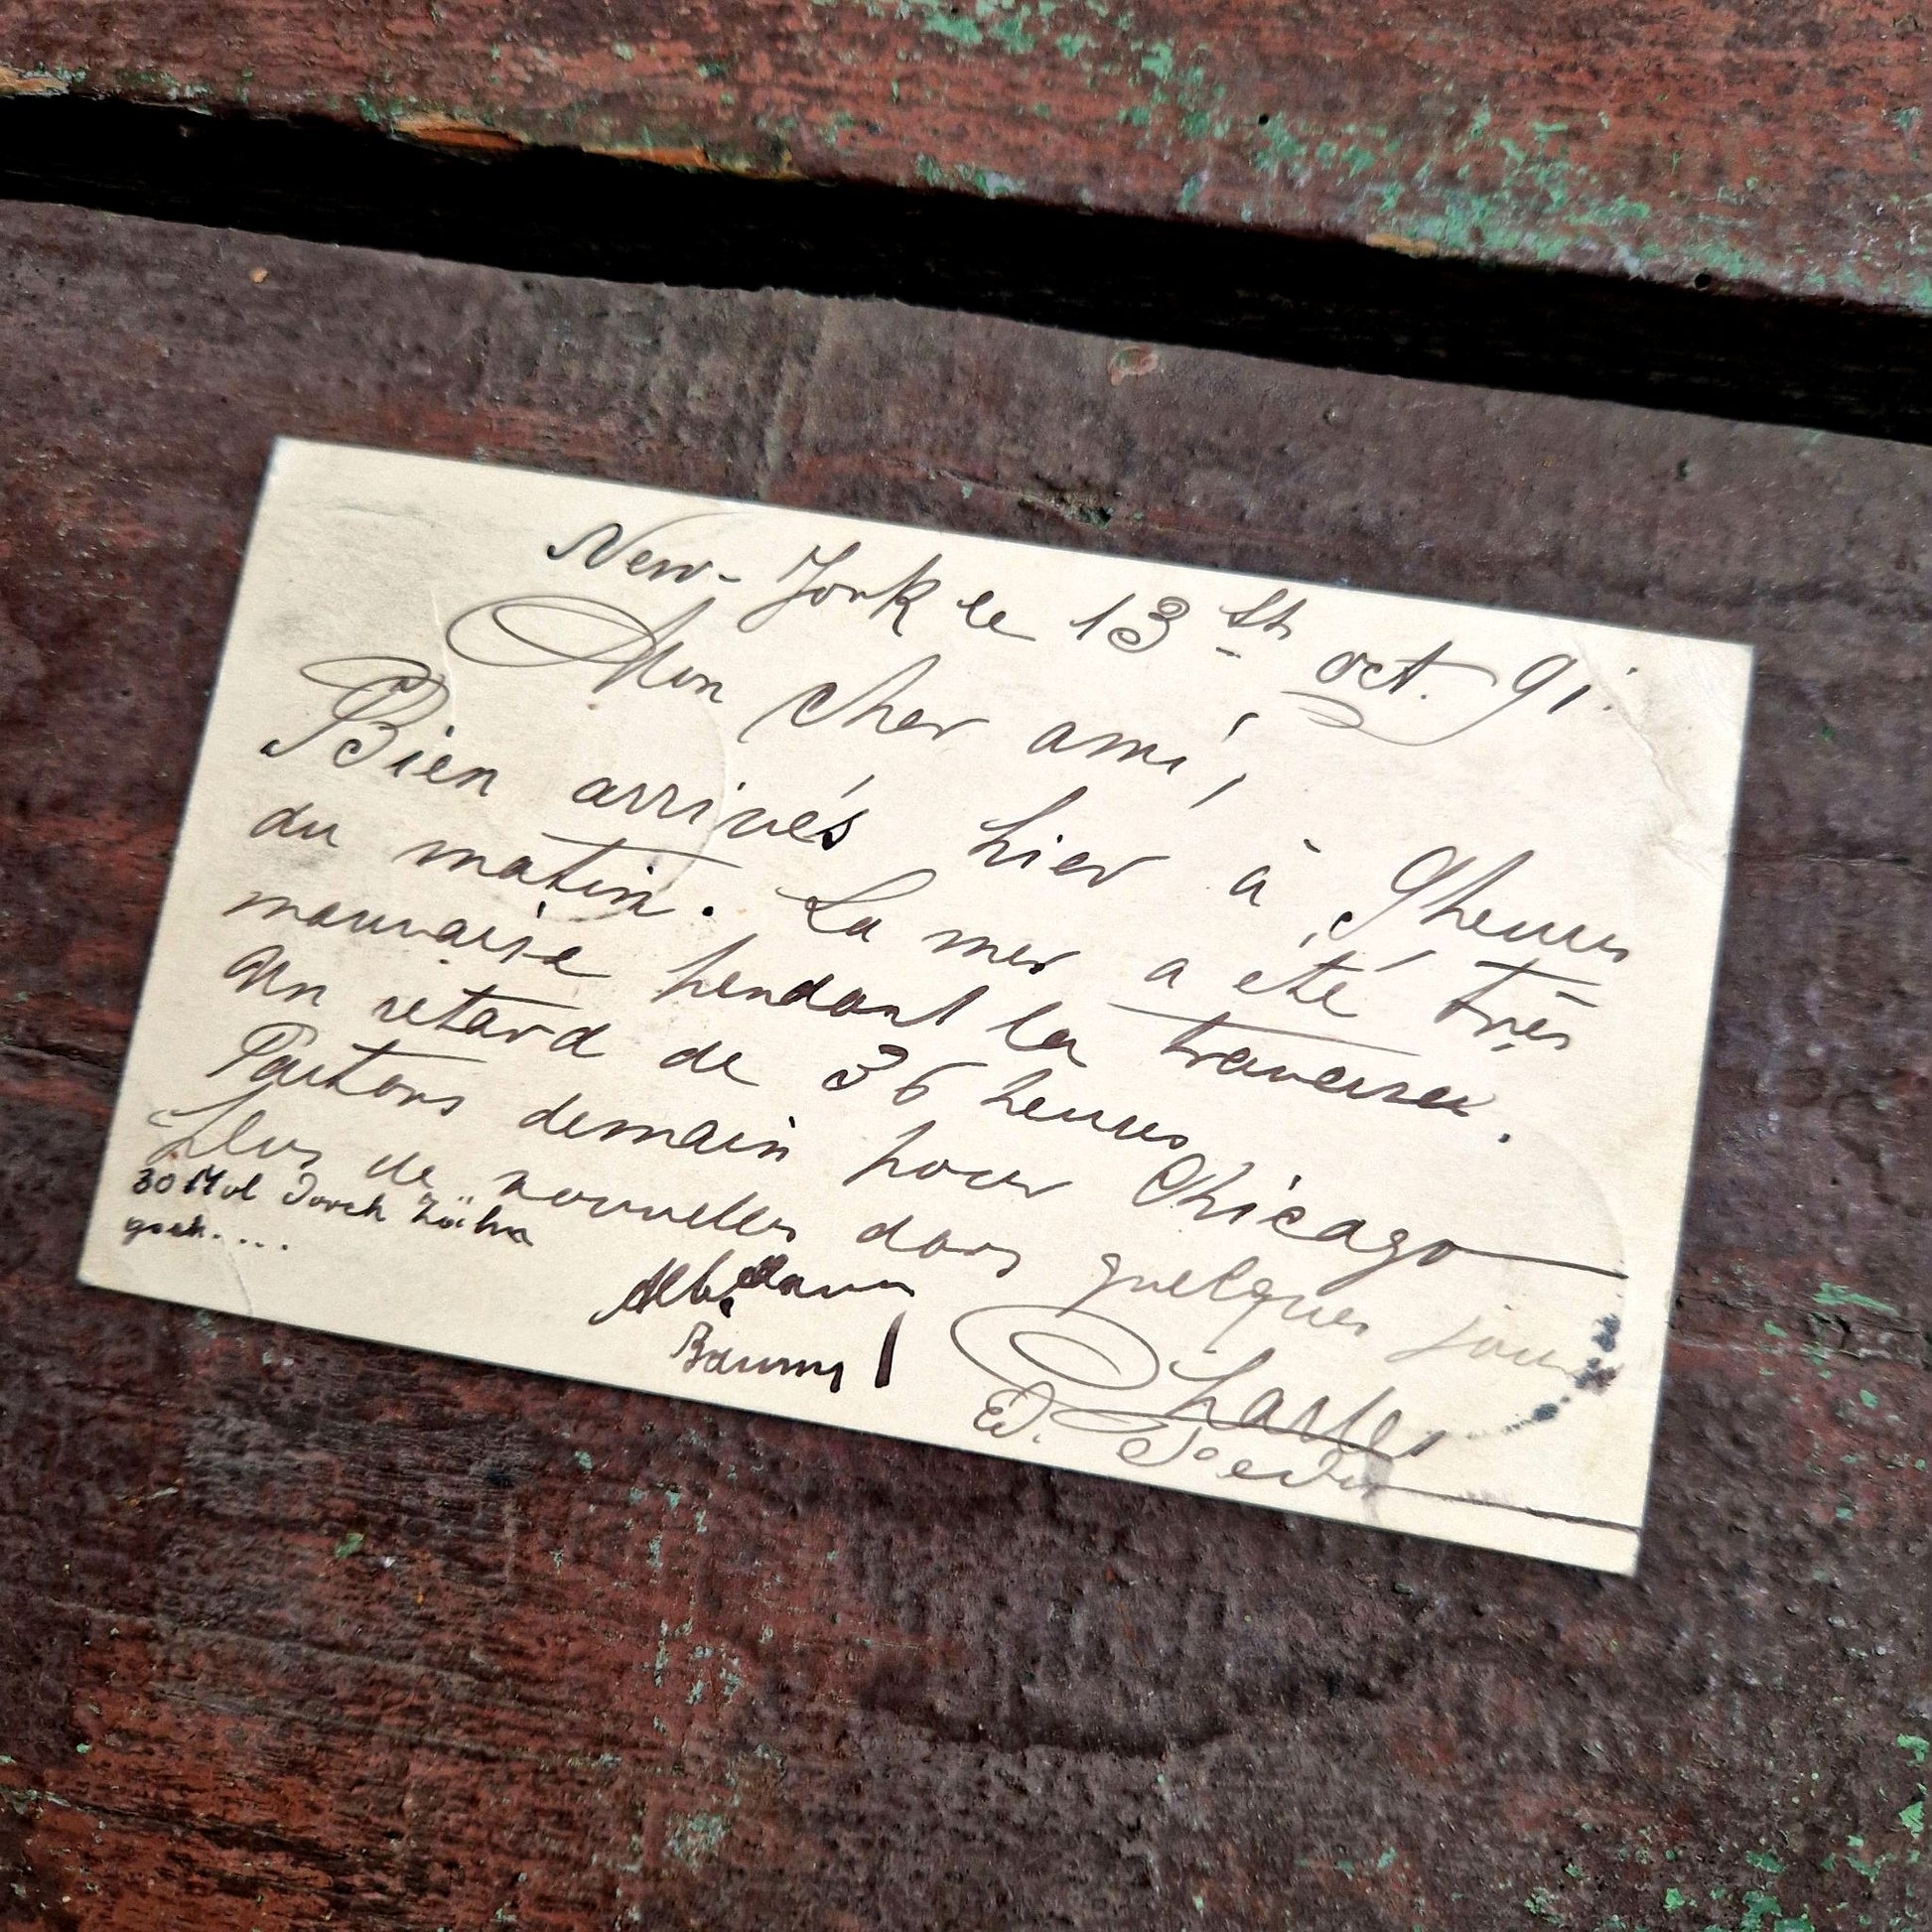 New-York le 13 th oct. 91.
Mon cher ami,
Bien arrivés hier à 9 heures
du matin. La mer a été très
mauvaise pendant la traversée.
Un retard de 36 heures
Partons demain pour Chicago
Plus de nouvelles dans quelques jours
30 Mol durch
Alb.
Charles
Ed.